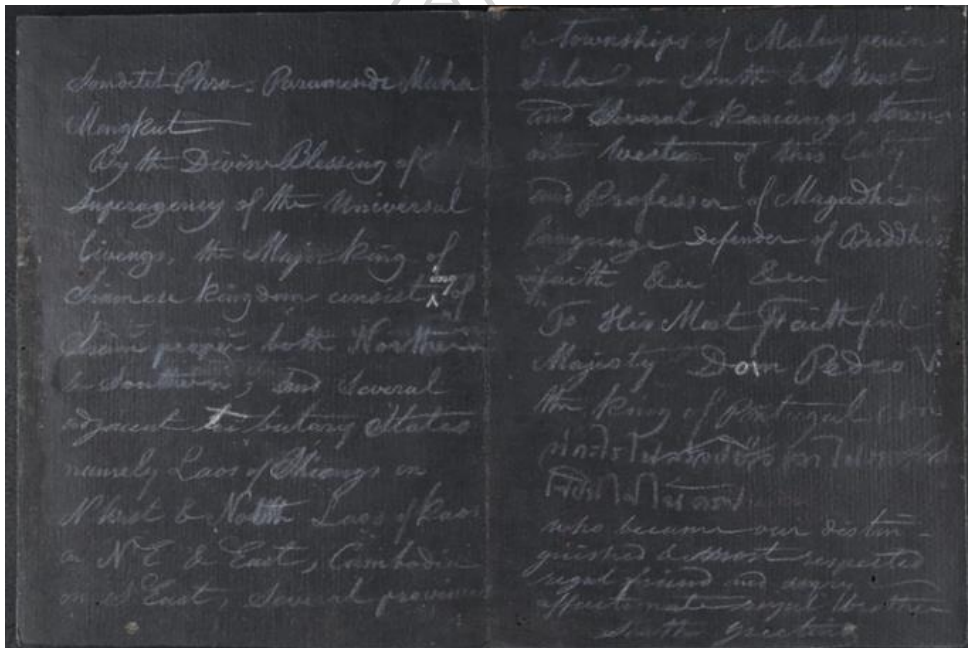 Somdetch Phra: Paramende Maha
Mongkut
By the Divine Blessing of
Superagency of the Universal
livings, the Major king of
Siamese kingdom consisting of
Siam proper both Northern
& Southern, and several
adjacent tributary States
namely Laos of Chiangs on
N. West & North Laos of Kaos
on N.E & East, Cambodia
on S East, Several provinces
& townships of Malay penin-
sula on South & S West
and Several Kariangs towns
on western of this City
and Professor of Magadhis
language defender of Buddhis
faith &cc &cc
To His Most Faithful
Majesty Dom Pedro V
the king of Portugal
who became our distin-
guished & most respected
regal friend and
affectionate royal Brother
Sendth greeting